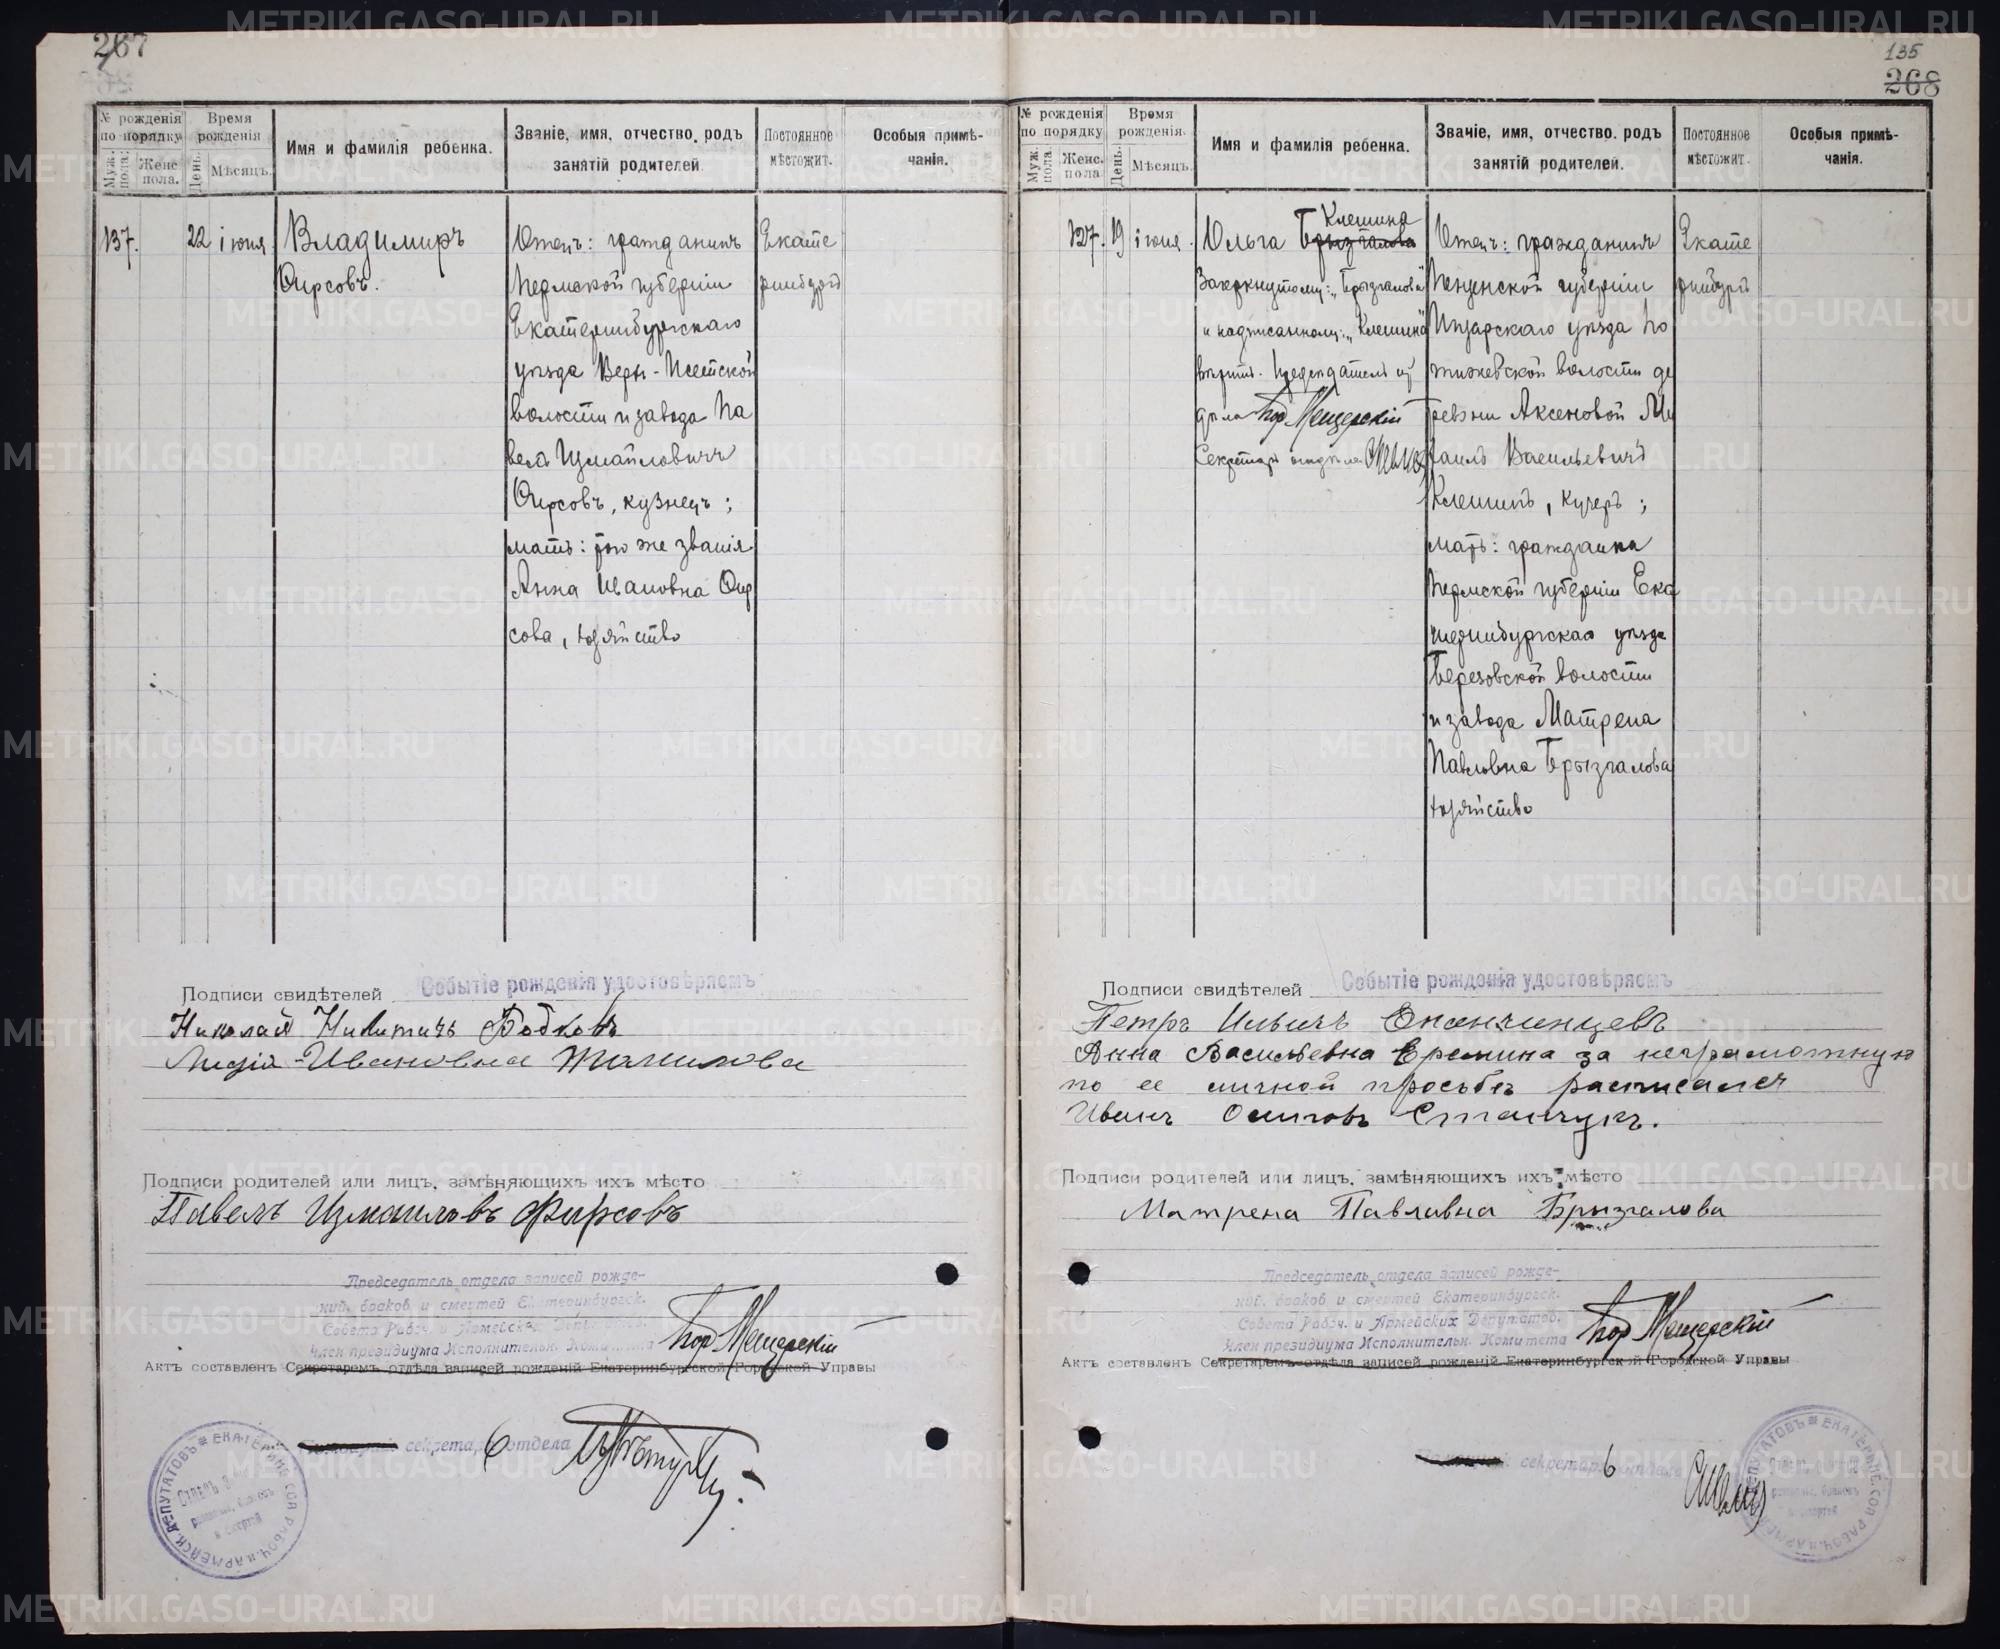 267
№ рожденія по порядку
Муж. пола.
Женс. пола.
Время рожденія
День.
Мѣсяцъ.
Имя и фамилія ребенка.
Званіе, имя, отчество, родъ занятій родителей.
Постоянное мѣстожит.
Особыя примѣ-
чанія.
137.
22 іюня
Владимиръ
Фирсовъ.
Отецъ: гражданинъ
Пермской губерніи
Екатеринбургскаго
уѣзда Верх-Исетской
волости и завода Па
велъ Измайловичъ
Фирсовъ, кузнецъ;
мать: того же званія
Анна Ивановна Фир
сова, хозяйство
Екате
ринбургъ
Подписи свидѣтелей
Событіе рожденія удостовѣряемъ
Николай Никитичъ Бобковъ
Лидія Ивановна
Подписи родителей или лицъ, замѣняющихъ ихъ мѣсто
Павелъ Измаиловъ Фирсовъ
Предсѣдатель отдела записей рожде-
ний, браков и смертей Екатеринбургск.
Совета Рабоч. и Армейских Депутатов.
Член президиума Исполнительн. Комитета
Пор Мещерскій
Актъ составленъ Секретаремъ отдѣла записей рожденій Екатеринбургской Городской Управы
секретарь отдела
135
268
№ рожденія по порядку
Муж. пола.
Женс. пола
Время рожденія.
День.
Мѣсяцъ.
Имя и фамилія ребенка.
Званіе, имя, отчество, родъ занятій родителей.
Постоянное мѣстожит.
Особыя примѣ-
чанія.
127.
19 іюня
Клешина
Ольга Брызгалова
Зачеркнутому: „Брызгалова"
и надписанному: „Клешина"
вѣрить. Предсѣдатель от
дѣла Пор Мещерскій
Секретарь отдѣла
Отецъ: гражданинъ
Пензенской губерніи
Инзарскаго уѣзда По
тижевской волости де
ревни Аксеновой Ми
хаилъ Васильевичъ
Клешинъ, кучеръ;
мать: гражданка
Пермской губерніи Ека
теринбургскаго уѣзда
Березовской волости
и завода Матрена
Павловна Брызгалова
хозяйство
Екате
ринбургъ
Подписи свидѣтелей
Событіе рожденія удостовѣряемъ
Петръ Ильичъ Епанчинцевъ
Анна Васильевна Еремина за неграмотную
по ее личной просьбѣ расписался
Иванъ Осиповъ Станчукъ.
Подписи родителей или лицъ, замѣняющихъ ихъ мѣсто
Матрена Павловна Брызгалова
Предсѣдатель отдела записей рожде-
ний, браков и смертей Екатеринбургск.
Совета Рабоч. и Армейских Депутатов.
Член президиума Исполнительн. Комитета
Пор Мещерскій
Актъ составленъ Секретаремъ отдѣла записей рожденій Екатеринбургской Городской Управы
секретарь отдела
METRIKI.GASO-URAL.RU